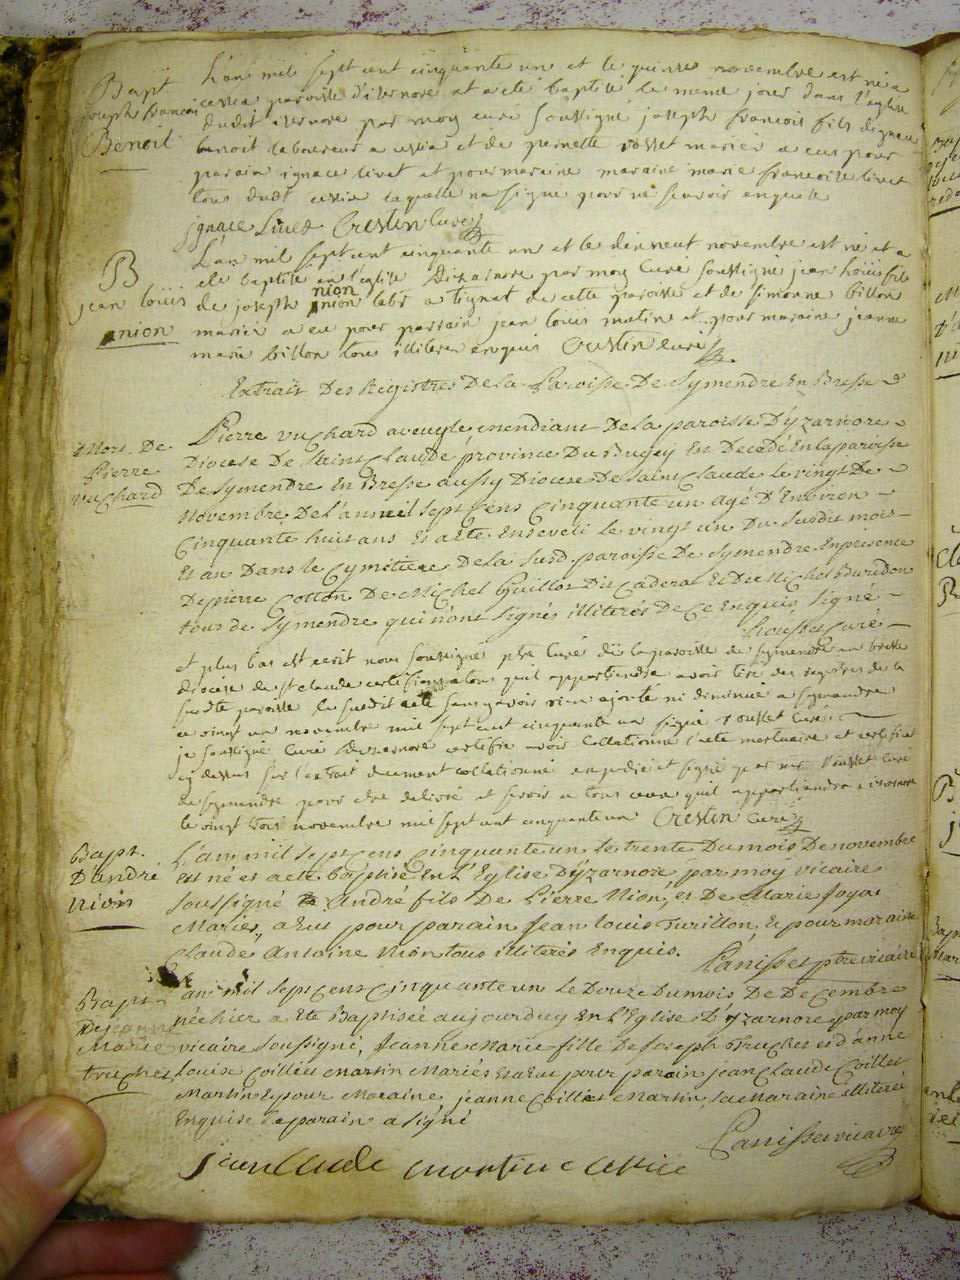 Bapt
joseph francois
Benoit
L'an mil sept cent cinquante un et le quinze novembre est né a
cessia paroisse d'isernore et a eté baptisé le meme jour dans l'eglise
dudit isernore par moy curé soussigné joseph francois fils d'ignace
benoit laboureur a cessia et de pernette rosset mariés a eus pour
parain ignace livet et pour maraine maraine marie francoise livet
tous dudt cessia laquelle na signé pour ne scavoir enquise
ignace Livet Crestin curé
B
jean louis
nion
L'an mil sept cent cinquante un et le dixneuf novembre est né et a
eté baptisé en l'eglise disarnore par moy Curé soussigné jean louis fils
de joseph nion nion labr a tignat de cette paroisse et de simonne billon
mariés a eu pour parrain jean louis matin et pour maraine jeanne
marie billon tous illiteres enquis Crestin curé
Extrait Des Registres De la Paroisse De Symendre En Bresse
Mort De
Pierre
vuchard
Pierre vuchard aveugle mendiant De la paroisse D'yzarnore
Diocese De Saint Claude province Du Bugey Est Decedé En la paroisse
De Symendre En Bresse aussy Diocese De Saint Claude le vingt De
Novembre De l'an mil sept Cens Cinquante un agé D'Environ
Cinquante huit ans Et a eté Enseveli le vingt un Du susdit mois
Et an Dans le Cymitiere De la susd. paroisse De Symendre En presence
De pierre Cotton De Michel Guillot Dit Caderat Et De Michel Buridon
tous de Symendre qui n'ont signés illiteres De Ce Enquis signé
Rousset Curé
et plus bas est ecrit nous soussigné ptre Curé de la paroisse de symendre en bresse
diocese de st claude certifions a tous quil appartiendra avoir tiré des registres de la
susdte paroisse le susdit acte sans y avoir rien ajouté ni diminué a symendre
ce vingt un novembre mil sept cent cinquante un signé rousset Curé
je soussigné Curé d'yzernore certifie avoir Collationné l'acte mortuaire et certifié
cy dessus sur l'extrait duement collationné expedié et signé par mr Rousset curé
de symendre pour etre delivré et servir a tous ceux quil appartiendra a isernore
le vingt trois novembre mil sept cent cinquante un Crestin Curé
Bapt.
D'andré
Nion
L'an mil sept Cens Cinquante un le trente Du mois De novembre
Est né et a eté baptisé En L'Eglise D'yzarnore par moy vicaire
soussigné andré fils De Pierre Nion, et De Marie Joyar
Mariés, a Eut pour parain Jean Louis Turillon, Et pour maraine
Claude Antoine Nion tous illiteres Enquis. Panisset ptre vicaire
Bapt
De jeanne
Marie
truchet
L'an mil sept cens Cinquante un Le Douze Du mois De Decembre
pêchier a Eté Baptisée aujourduy En L'Eglise D'yzarnore par moy
vicaire soussigné, Jeanne Marie fille De Joseph Truchet et d'anne
Louise Coillet Martin Mariés Et a Eut pour parain Jean Claude Coillet
Martin Et pour Maraine jeanne Coillet Martin, La Maraine illiteré
Enquise Le parain a signé
Panisset vicaire
jean claude martin